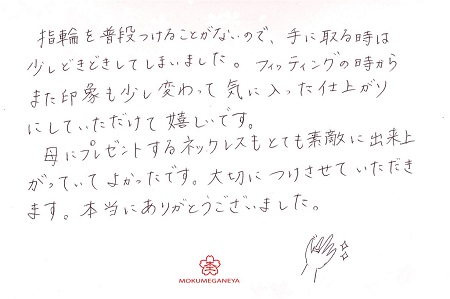 指輪を普段つけることがないので、手に取る時は
少しどきどきしてしまいました。フィッティングの時から
また印象も少し変わって気に入った仕上がり
にしていただけて嬉しいです。
母にプレゼントするネックレスもとても素敵に出来上
がっていてよかったです。大切につけさせていただき
ます。本当にありがとうございました。
MOKUMEGANEYA